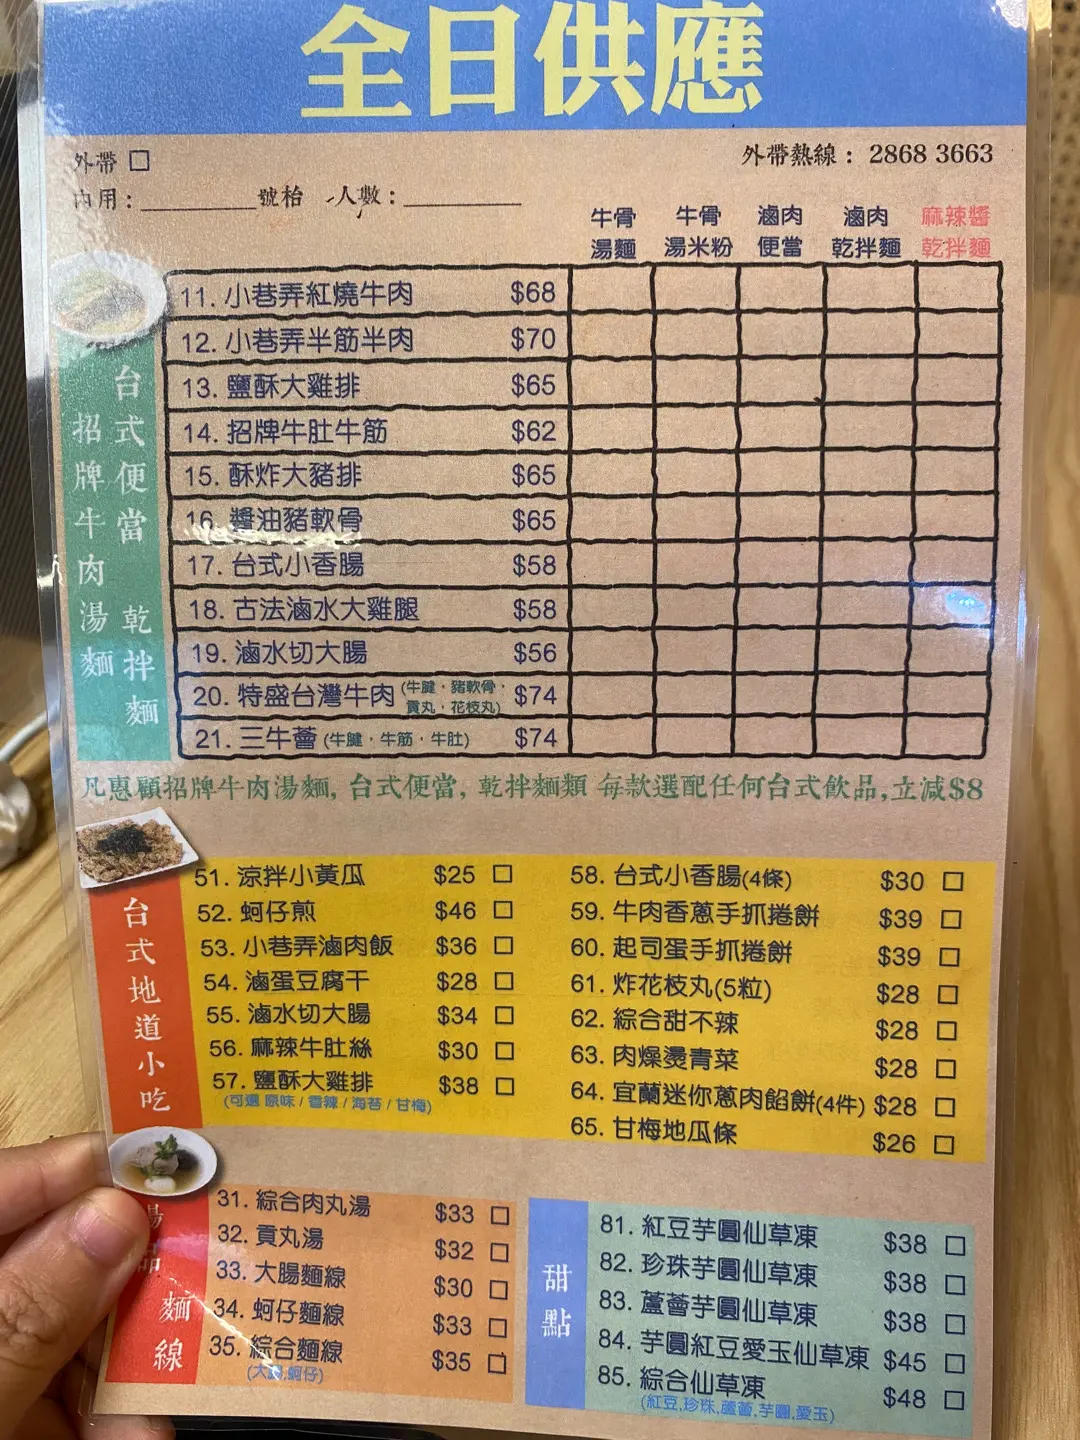 全日供應
外帶 □ 外帶熱線： 2868 3663
內用：________號枱 人數：________
牛骨湯麵 牛骨湯米粉 滷肉便當 滷肉乾拌麵 麻辣醬乾拌麵
台式便當 乾拌麵
招牌牛肉湯麵
11. 小巷弄紅燒牛肉 $68
12. 小巷弄半筋半肉 $70
13. 鹽酥大雞排 $65
14. 招牌牛肚牛筋 $62
15. 酥炸大豬排 $65
16. 醬油豬軟骨 $65
17. 台式小香腸 $58
18. 古法滷水大雞腿 $58
19. 滷水切大腸 $56
20. 特盛台灣牛肉 (牛腱．豬軟骨．貢丸．花枝丸) $74
21. 三牛薈 (牛腱．牛筋．牛肚) $74
凡惠顧招牌牛肉湯麵, 台式便當, 乾拌麵類 每款選配任何台式飲品,立減$8
台式地道小吃
51. 涼拌小黃瓜 $25 □
52. 蚵仔煎 $46 □
53. 小巷弄滷肉飯 $36 □
54. 滷蛋豆腐干 $28 □
55. 滷水切大腸 $34 □
56. 麻辣牛肚絲 $30 □
57. 鹽酥大雞排 $38 □
(可選 原味 / 香辣 / 海苔 / 甘梅)
58. 台式小香腸(4條) $30 □
59. 牛肉香蔥手抓捲餅 $39 □
60. 起司蛋手抓捲餅 $39 □
61. 炸花枝丸(5粒) $28 □
62. 綜合甜不辣 $28 □
63. 肉燥燙青菜 $28 □
64. 宜蘭迷你蔥肉餡餅(4件) $28 □
65. 甘梅地瓜條 $26 □
湯品 麵線
31. 綜合肉丸湯 $33 □
32. 貢丸湯 $32 □
33. 大腸麵線 $30 □
34. 蚵仔麵線 $33 □
35. 綜合麵線 $35 □
(大腸,蚵仔)
甜點
81. 紅豆芋圓仙草凍 $38 □
82. 珍珠芋圓仙草凍 $38 □
83. 蘆薈芋圓仙草凍 $38 □
84. 芋圓紅豆愛玉仙草凍 $45 □
85. 綜合仙草凍 $48 □
(紅豆,珍珠,蘆薈,芋圓,愛玉)